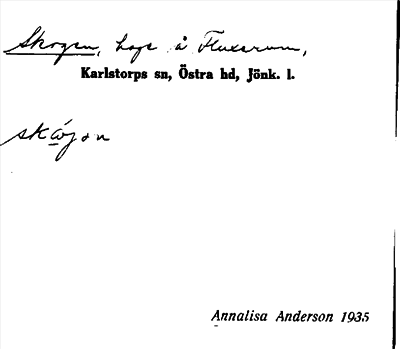 Skogen, hage å Fluxerum,
Karlstorps sn, Östra hd, Jönk. l.
skógən
Annalisa Anderson 1935